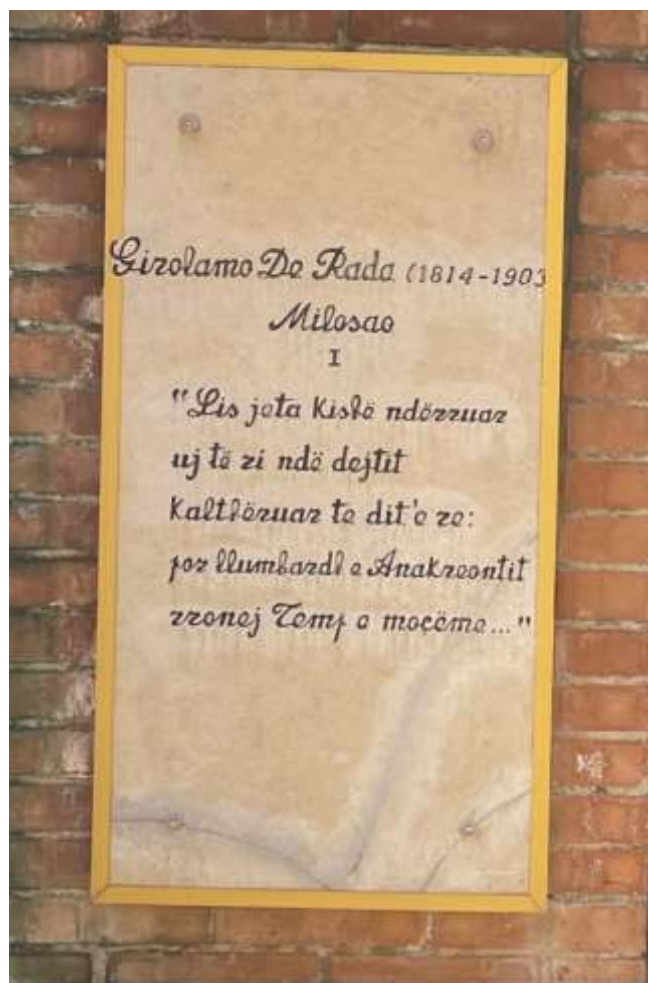 Girolamo De Rada (1814-1903
Milosao
I
"Lis jeta kishë ndërruar
uj të zi ndë dejtit
kalthëruar te dit'e re:
por llumbardh e Anakreontit
rronej Temp e moçëme..."